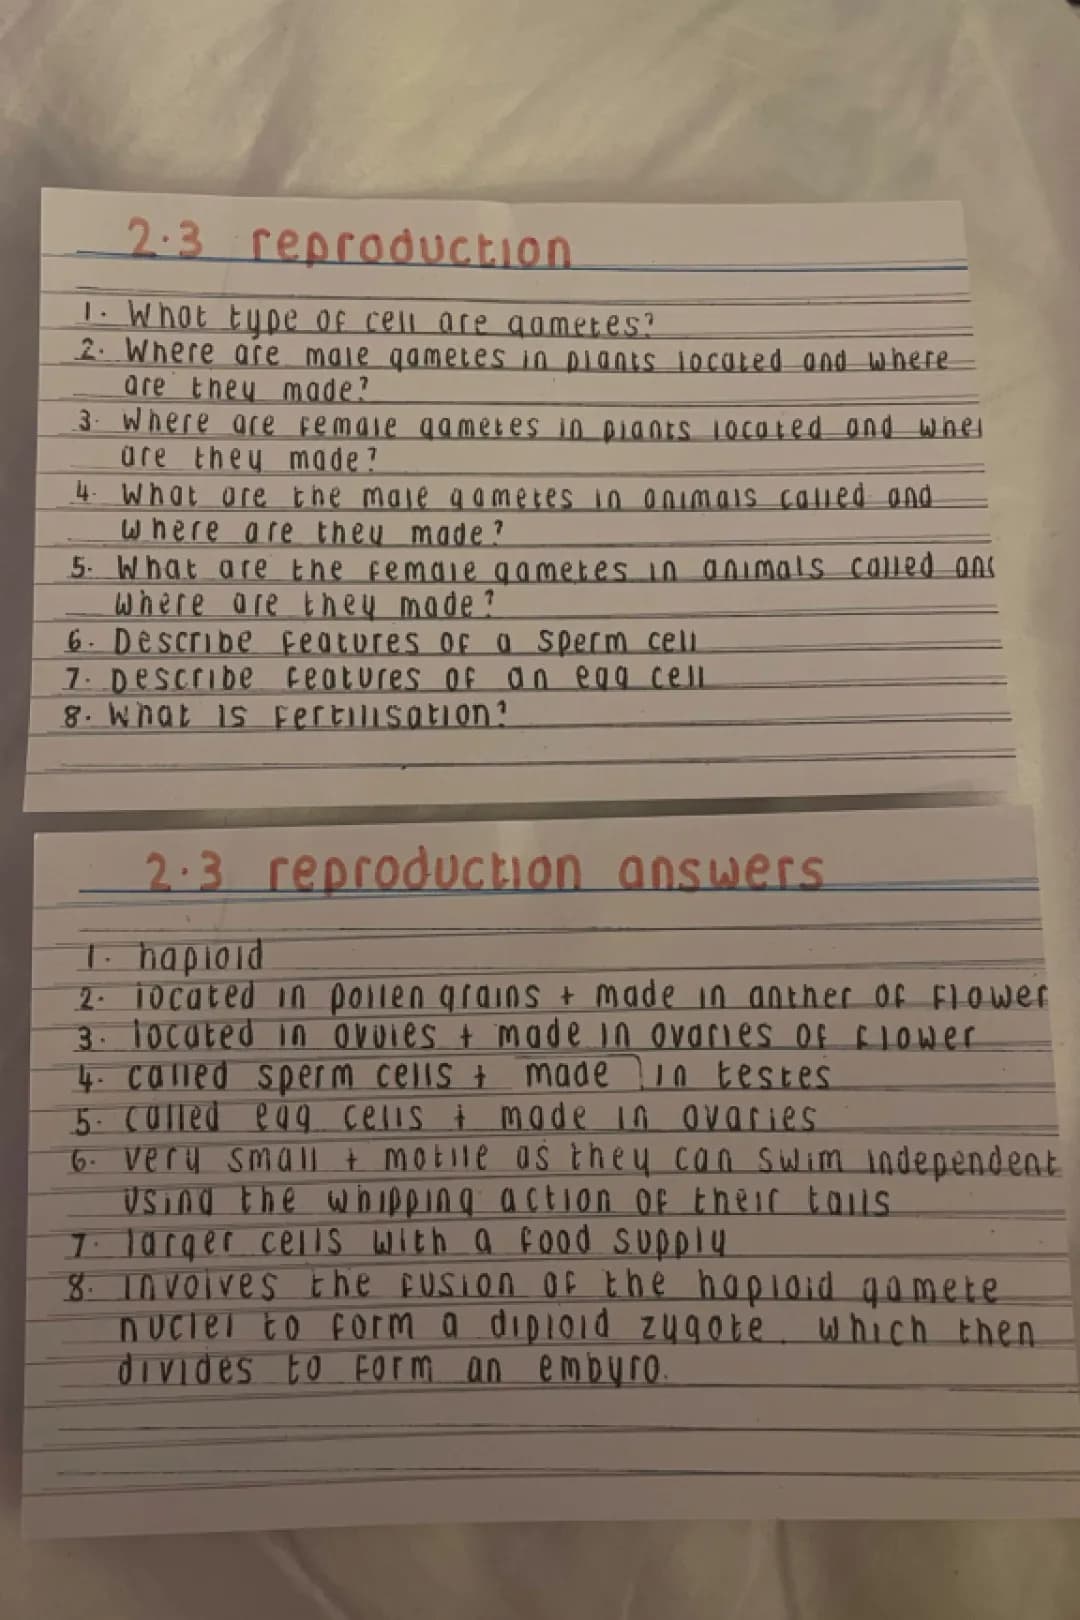 2.3 reproduction
1. What type of cell are gametes?
2. Where are male gametes in plants located and where
are they made?
3. Where are female gametes in plants located and wher
are they made?
4. What are the male gametes in animals called and
where are they made?
5. What are the female gametes in animals called and
where are they made?
6. Describe features of a sperm cell
7. Describe features of an egg cell
8. What is fertilisation?
2.3 reproduction answers
1. haploid
2. located in pollen grains + made in anther of flower
3. located in ovules + made in ovaries of flower
4. called sperm cells + made in testes
5. called egg cells + made in ovaries
6. very small + motile as they can swim independent
using the whipping action of their tails
7. larger cells with a food supply
8. involves the fusion of the haploid gamete
nuclei to form a diploid zygote. which then
divides to form an embyro.